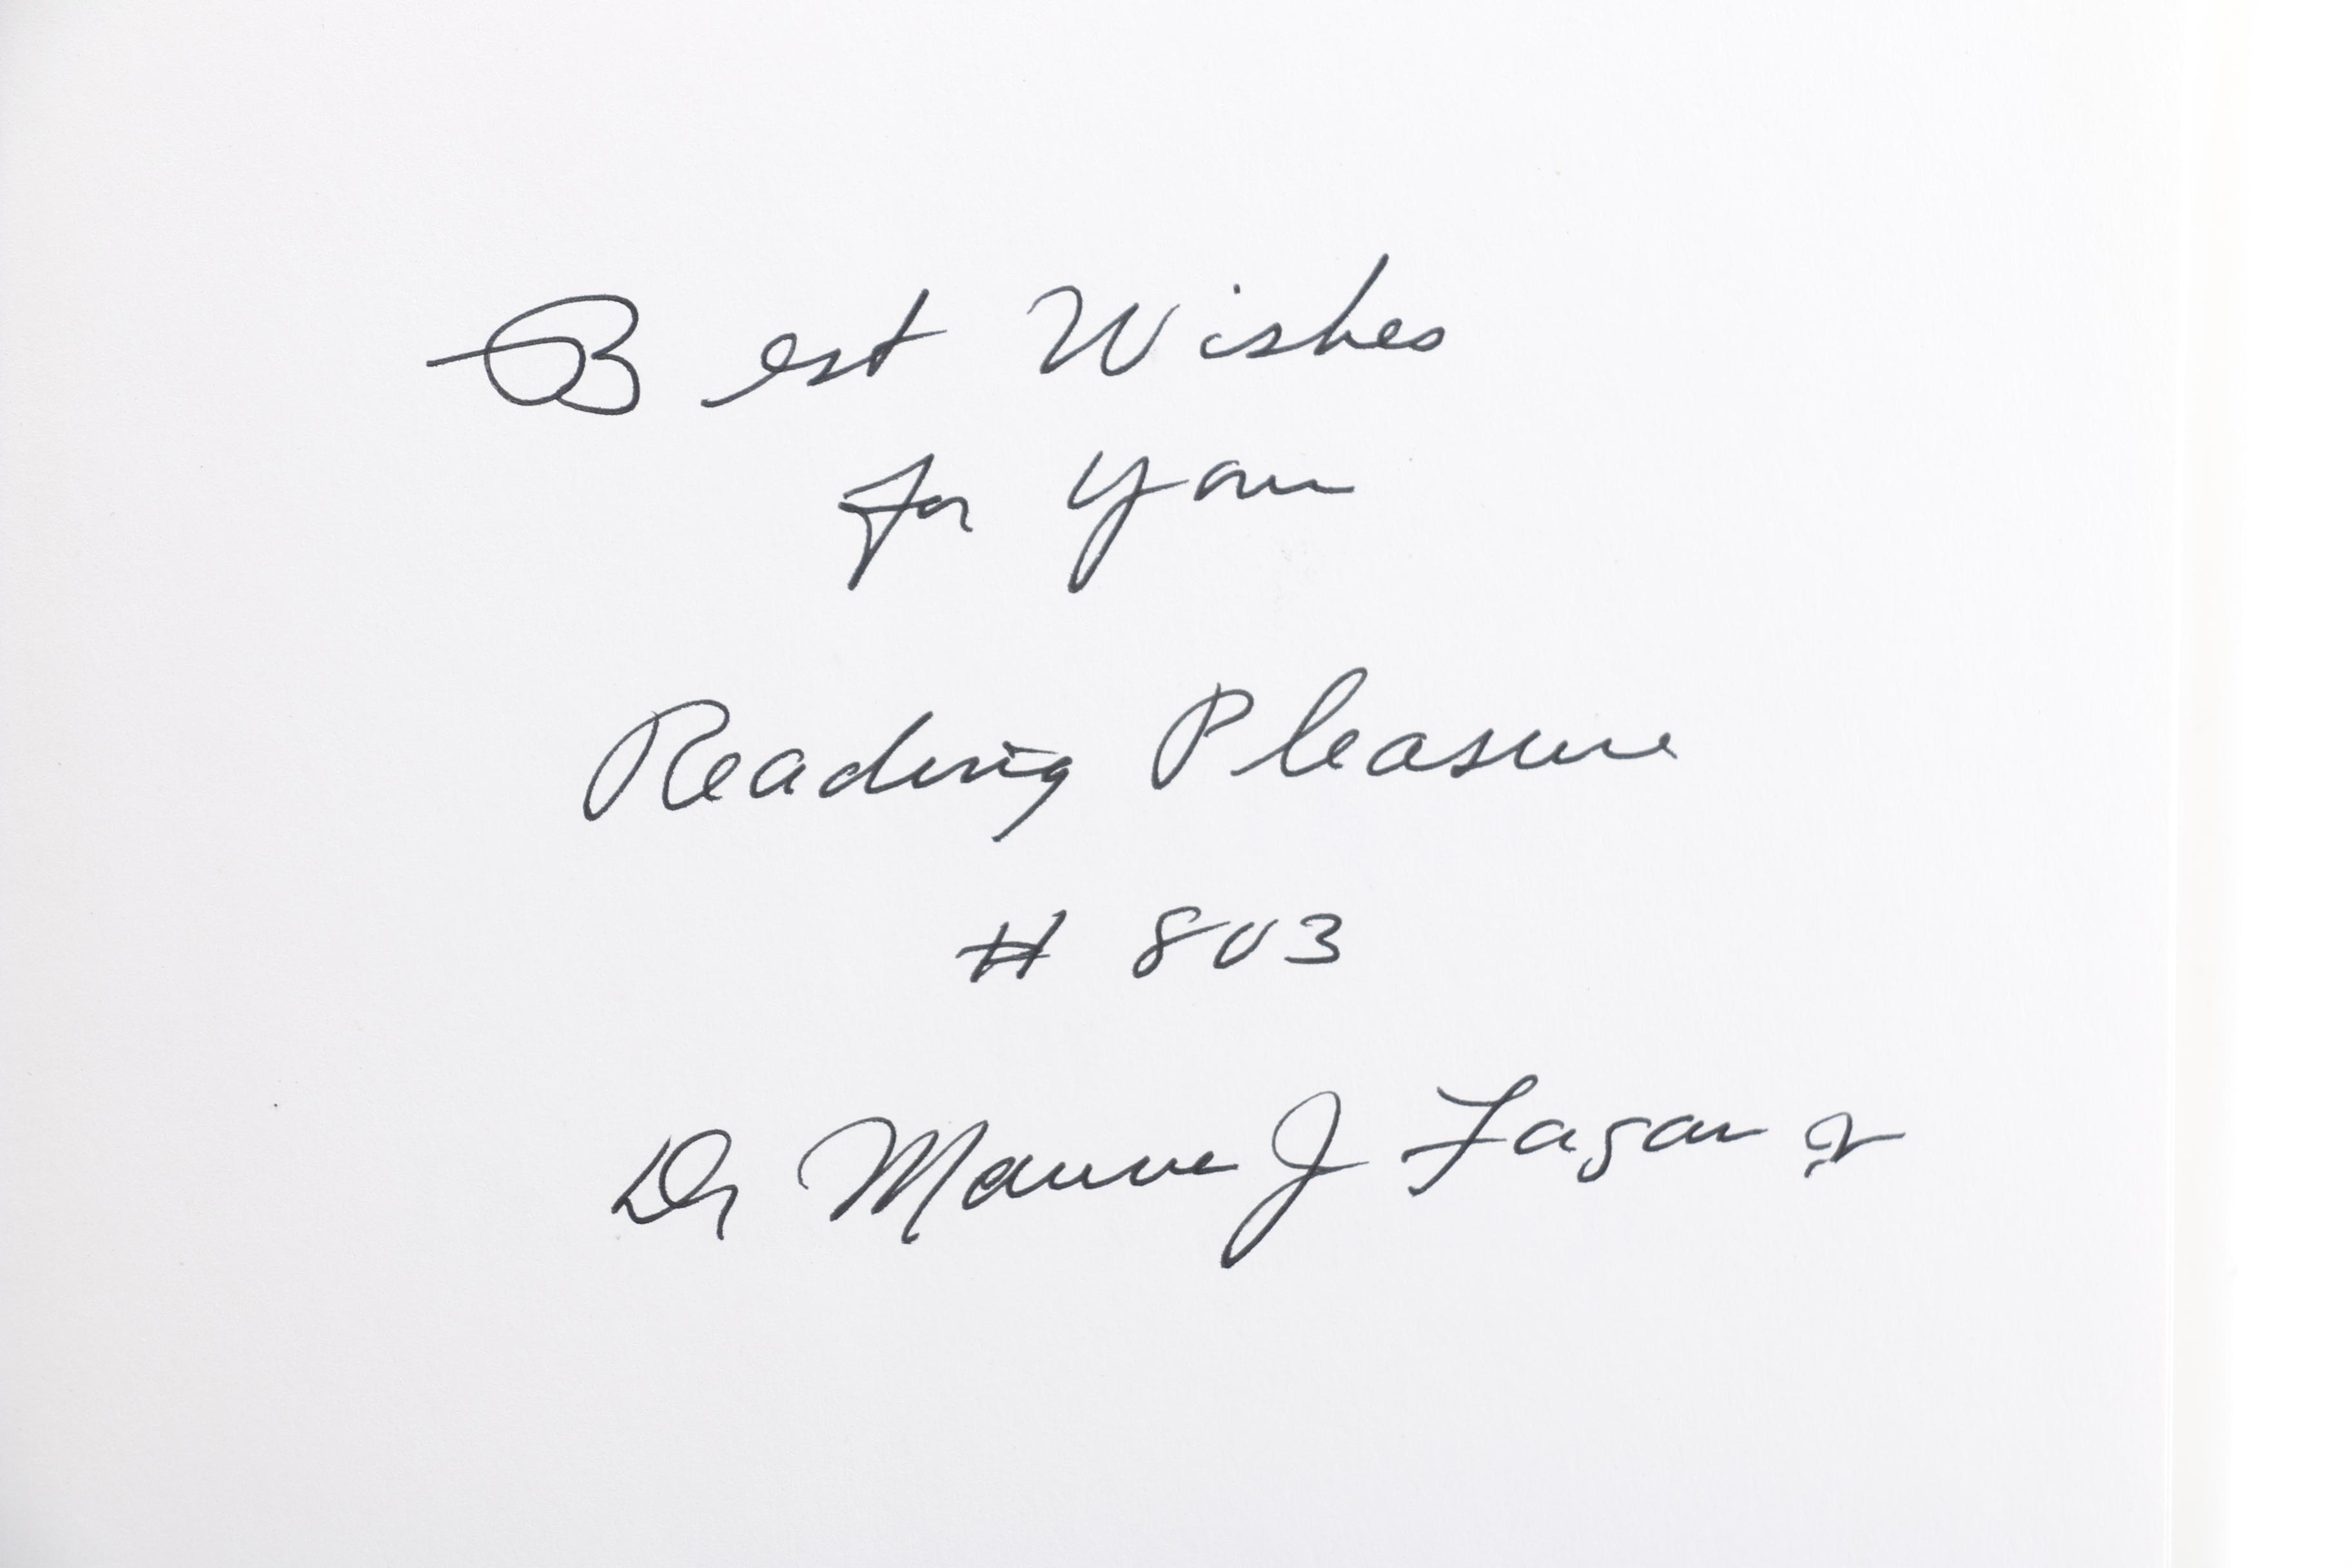 Best Wishes
for your
Reading Pleasure
# 803
Dr J Fagan Jr